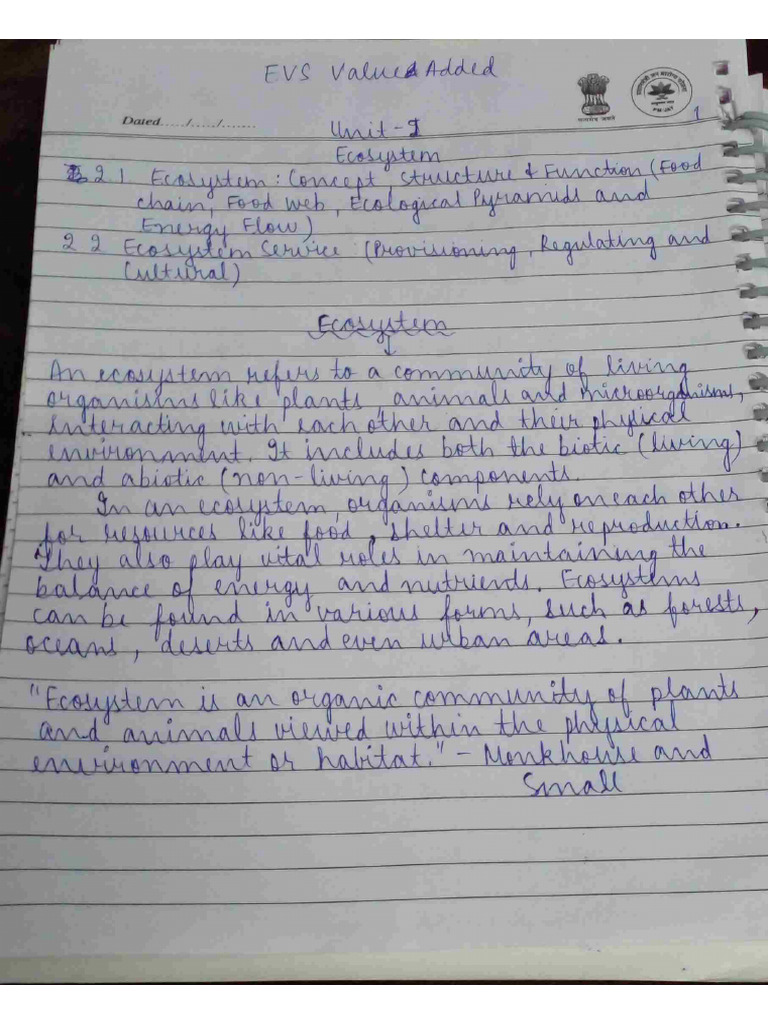 EVS Value Added
Dated...../...../.......
Unit - I
1
Ecosystem
2.1 Ecosystem: Concept Structure & Function (Food
chain, Food Web, Ecological Pyramids and
Energy Flow)
2.2 Ecosystem Service (Provisioning, Regulating and
Cultural)
Ecosystem
An ecosystem refers to a community of living
organisms like plants, animals and microorganisms,
interacting with each other and their physical
environment. It includes both the biotic (living)
and abiotic (non-living) components.
In an ecosystem, organisms rely on each other
for resources like food, shelter and reproduction.
They also play vital roles in maintaining the
balance of energy and nutrients. Ecosystems
can be found in various forms, such as forests,
oceans, deserts and even urban areas.
"Ecosystem is an organic community of plants
and animals viewed within the physical
environment or habitat." - Monkhouse and
Small